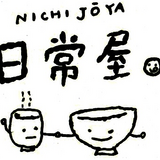 NICHIJŌYA
日常屋。